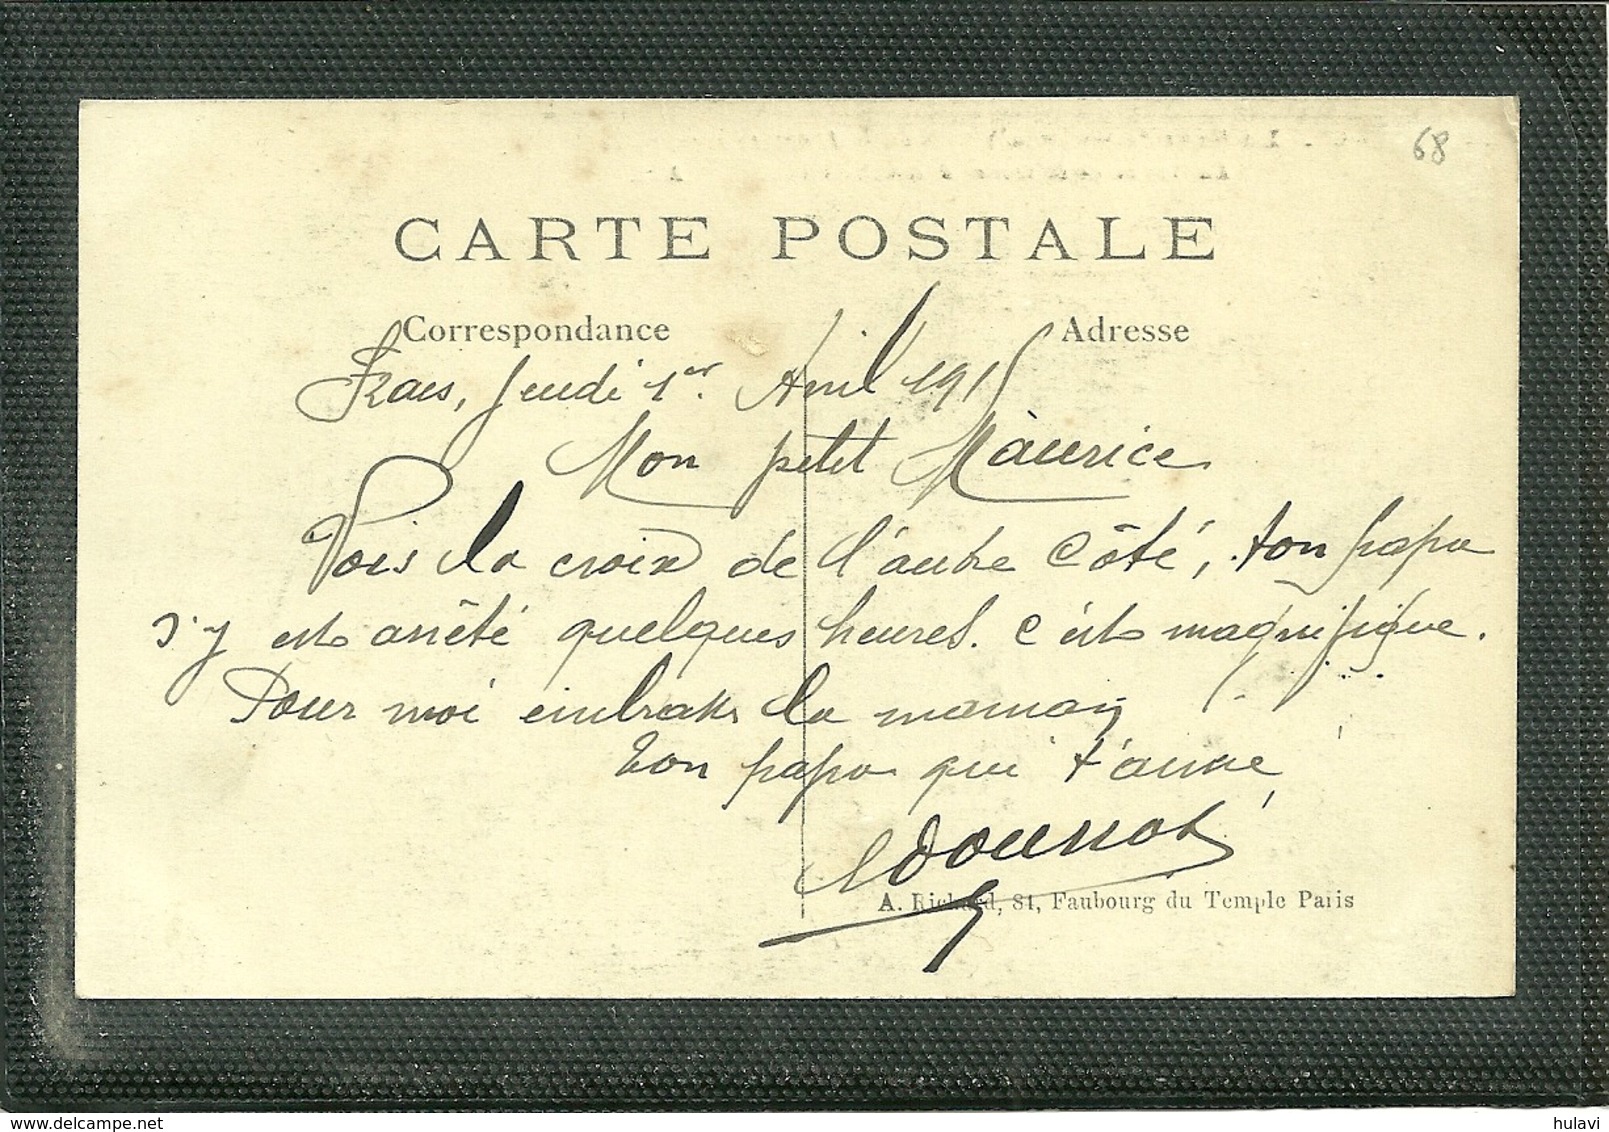 68
CARTE POSTALE
Correspondance
Adresse
Frais, Jeudi 1er Avril 1915
Mon petit Maurice
Vois la croix de l'autre Côté, ton papa
s'y est arrêté quelques heures. C'est magnifique.
Pour moi embrasse la maman
Ton papa qui t'aime
A. Richard, 84, Faubourg du Temple Paris
hulavi